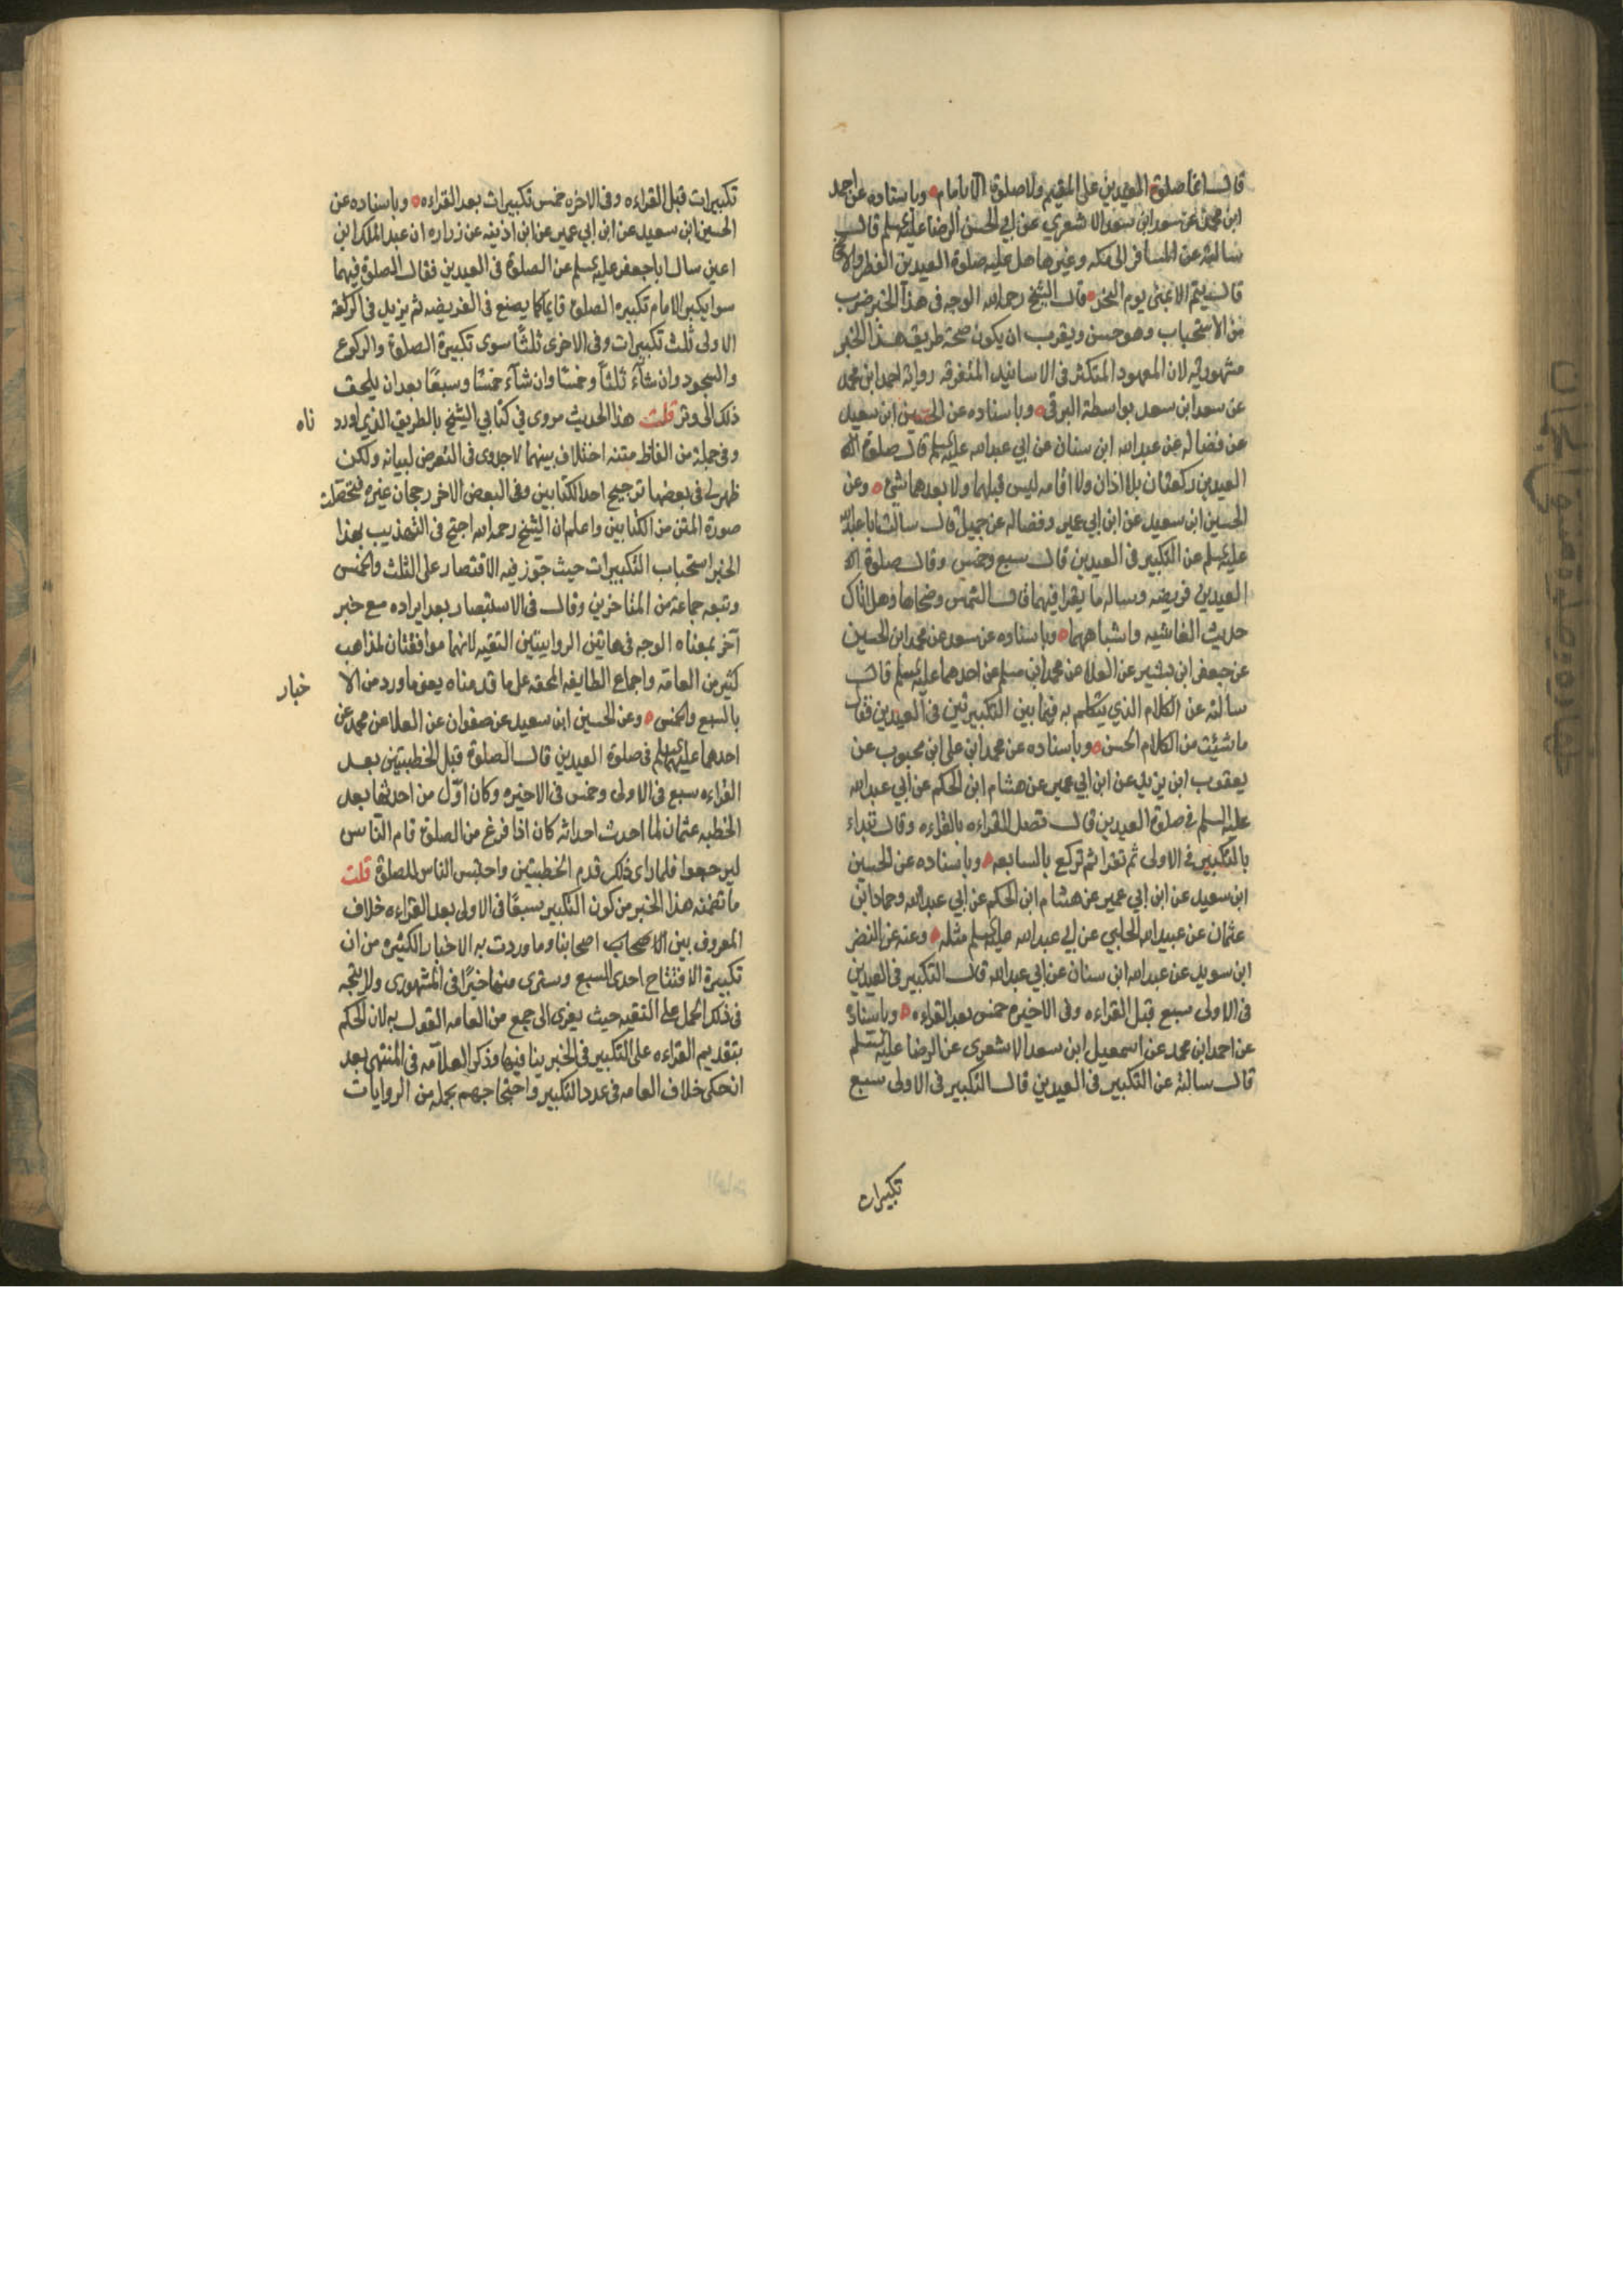 قال انما صلوة العيدين على المقيم ولا صلوة الا بامام وباسناده عن احمد
ابن محمد عن سعد ابن سعد الاشعري عن ابي الحسن الرضا عليه السلم قال
سالته عن المسافر الى مكه وغيرها هل عليه صلوة العيدين الفطر والاضحى
قال نعم الا بمنى يوم النحر وقال الشيخ رحمه الله الوجه في هذا الخبر ضرب
من الاستحباب وهو حسن ويقرب ان يكون صحة طريق هذا الخبر
مشهوريه لان المعهود المتكثر في الاسانيد المتفرقه رواية احمد ابن محمد
عن سعد ابن سعد بواسطة البرقي وباسناده عن الحسين ابن سعيد
عن فضاله عن عبدالله ابن سنان عن ابي عبدالله عليه السلم قال صلوة
العيدين ركعتان بلا اذان ولا اقامه ليس قبلهما ولا بعدهما شئ وعن
الحسين ابن سعيد عن ابن ابي عمير وفضاله عن جميل قال سالت ابا عبدالله
عليه السلم عن التكبير في العيدين قال سبع وخمس وقال صلوة
العيدين فريضه وساله ما يقرا فيهما قال والشمس وضحاها وهل اتاك
حديث الغاشيه واشباههما وباسناده عن سعد عن محمد ابن الحسين
عن جعفر ابن بشير عن العلا عن محمد ابن مسلم عن احدهما عليه السلم قال
سالته عن الكلام الذي يتكلم به فيما بين التكبيرتين في العيدين فقال
ما شئت من الكلام الحسن وباسناده عن محمد ابن علي ابن محبوب عن
يعقوب ابن يزيد عن ابن ابي عمير عن هشام ابن الحكم عن ابي عبدالله
عليه السلم في صلوة العيدين قال تصل القراءه بالقراءه وقال تبداء
بالتكبير في الاولى ثم تقرا ثم تركع بالسابعه وباسناده عن الحسين
ابن سعيد عن ابن ابي عمير عن هشام ابن الحكم عن ابي عبدالله وحماد ابن
عثمان عن عبيدالله الحلبي عن ابي عبدالله عليه السلم مثله وعنه عن النضر
ابن سويد عن عبدالله ابن سنان عن ابي عبدالله قال التكبير في العيدين
في الاولى سبع قبل القراءه وفي الاخيره خمس بعد القراءه وباسناده
عن احمد ابن محمد عن اسمعيل ابن سعد الاشعري عن الرضا عليه السلم
قال سالته عن التكبير في العيدين قال التكبير في الاولى سبع
تكبيرات
تكبيرات قبل القراءه وفي الاخره خمس تكبيرات بعد القراءه وباسناده عن
الحسين ابن سعيد عن ابن ابي عمير عن ابن اذينه عن زراره ان عبد الملك ابن
اعين سال ابا جعفر عليه السلم عن الصلوة في العيدين فقال الصلوة فيهما
سوا يكبر الامام تكبيره الصلوة قايما كما يصنع في الفريضه ثم يزيد في الركعة
الاولى ثلث تكبيرات وفي الاخرى ثلثا سوى تكبيرة الصلوة والركوع
والسجود وان شآء ثلثا وخمسا وان شآء خمسا وسبعا بعد ان يلحق
ذلك الى وتر قلت هذا الحديث مروي في كتابي الشيخ بالطريق الذي اورد
ناه
وفي جملة من الفاظ متنه اختلاف بينهما لا جدوى في التعرض لبيانه ولكن
ظهر لي في بعضها ترجيح احد الكتابين وفي البعض الاخر رجحان غيره فتحصلت
صورة المتن من الكتابين واعلم ان الشيخ رحمه الله احتج في التهذيب بهذا
الخبر استحباب التكبيرات حيث جوز فيه الاقتصار على الثلث والخمس
وتبعه جماعة من المتاخرين وقال في الاستبصار بعد ايراده مع خبر
آخر بمعناه الوجه في هاتين الروايتين التقيه لانهما موافقتان لمذاهب
كثير من العامه واجماع الطايفه المحقه على ما قدمناه يعني ما ورد من الا
خبار
بالسبع والخمس وعن الحسين ابن سعيد عن صفوان عن العلا عن محمد عن
احدهما عليهما السلم في صلوة العيدين قال الصلوة قبل الخطبتين بعد
القراءه سبع في الاولى وخمس في الاخيره وكان اول من احدثها بعد
الخطبه عثمان لما احدث احداثه كان اذا فرغ من الصلوة قام الناس
ليرجعوا فلما راى ذلك قدم الخطبتين واحتبس الناس للصلوة قلت
ما تضمنه هذا الخبر من كون التكبير سبعا في الاولى بعد القراءه خلاف
المعروف بين الاصحاب اصحابنا وما وردت به الاخبار الكثيره من ان
تكبيرة الافتتاح احدى السبع وسترى منها خبرا في المشهوري ولا يتجه
في ذلك الحمل على التقيه حيث يعزى الى جمع من العامه القول به لان الحكم
بتقديم القراءه على التكبير في الخبر ينافيها وذكر العلامه في المنتهى بعد
ان حكى خلاف العامه في عدد التكبير واحتجاجهم بجمله من الروايات